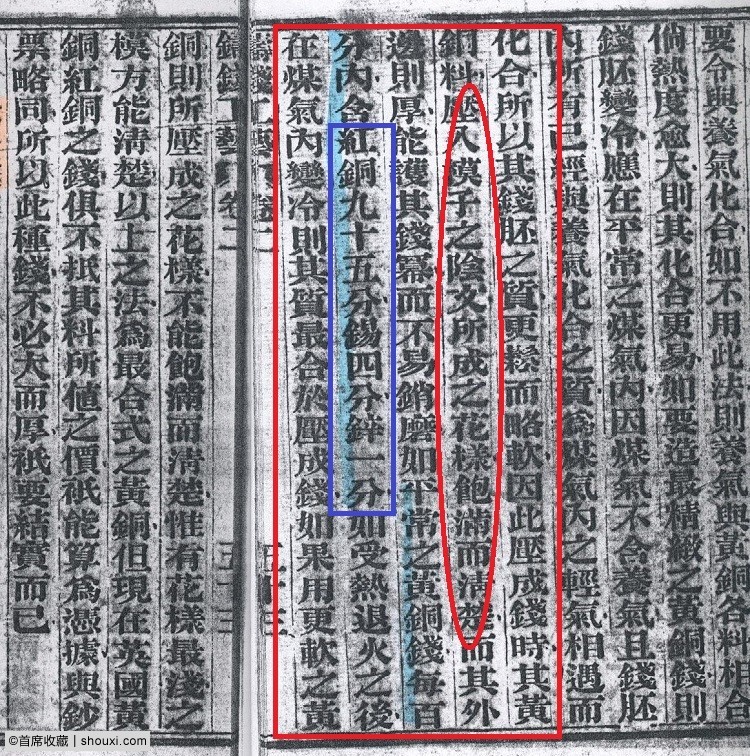 要令與養氣化合如不用此法則養氣與黃銅各料相合
倘熱度愈大則其化合更易如要造最精緻之黃銅錢則
錢胚變冷應在平常之煤氣內因煤氣不含養氣且錢胚
內所有已經與養氣化合之質為煤氣內之輕氣相遇而
化合所以其錢胚之質更鬆而略軟因此壓成錢時其黃
銅料壓入模子之陰文所成之花樣飽滿而清楚而其外
邊則厚能護其錢冪而不易銷磨如平常之黃銅錢每百
分內含紅銅九十五分錫四分鋅一分如受熱退火之後
在煤氣內變冷則其質最合於壓成錢如果用更軟之黃
鑄錢工藝 卷二 五十三
銅則所壓成之花樣不能飽滿而清楚惟有花樣最淺之
模方能清楚以上之法為最合式之黃銅但現在英國黃
銅紅銅之錢俱不抵其料所值之價祇能算為憑據與鈔
票略同所以此種錢不必大而厚祇要結實而已
©首席收藏 | shouxi.com